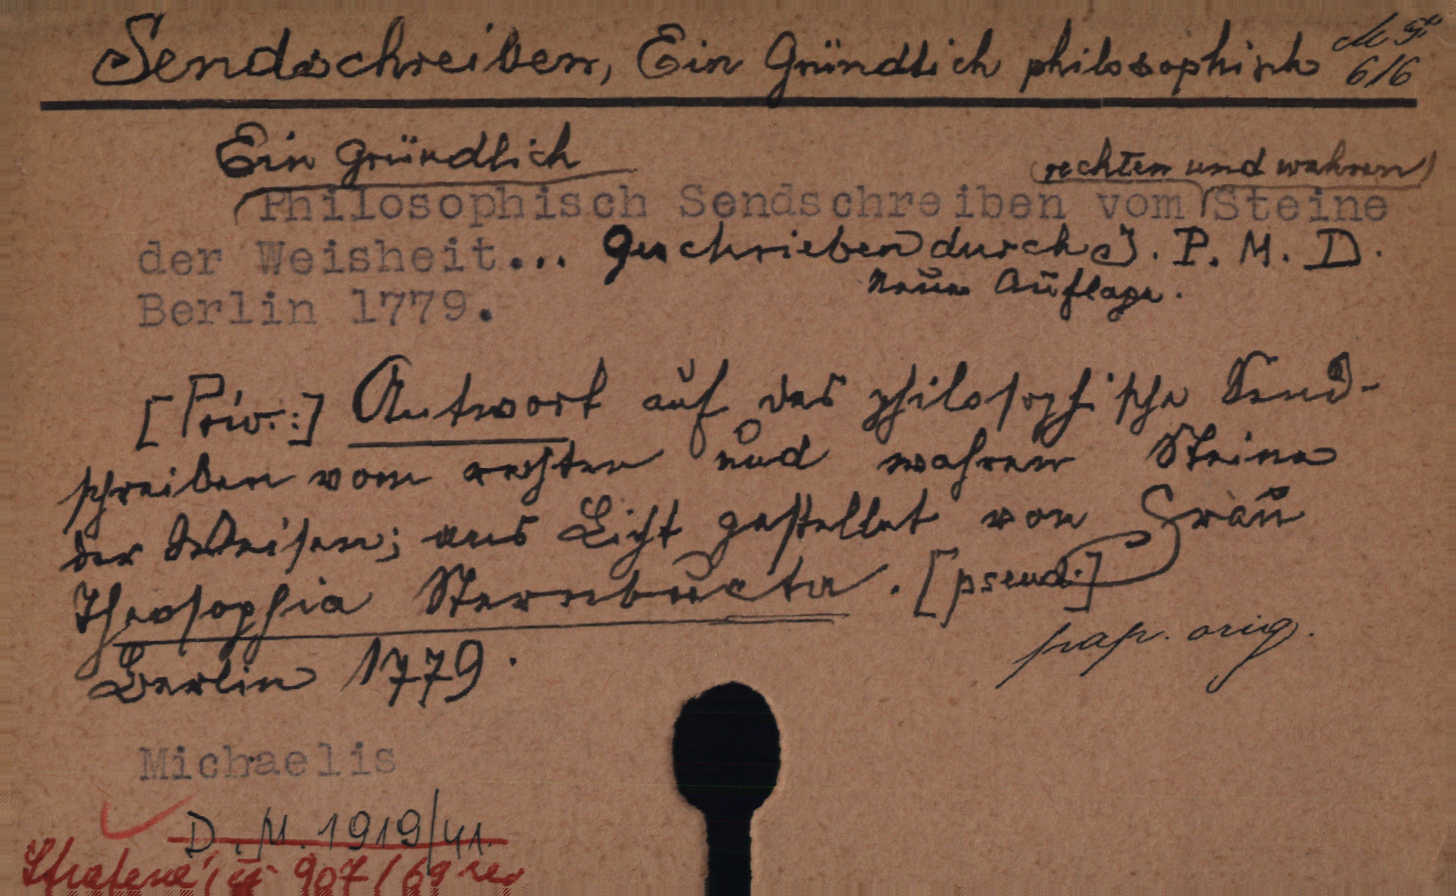 Sendschreiben, Ein Gründlich philosophisch
6/6
Ein gründlich
(rechten und wahren)
Philosophisch Sendschreiben vom Steine
der Weisheit... geschrieben durch J. P. M. D.
Neue Auflage.
Berlin 1779.
[Priv.:] Antwort auf das philosophische Send-
schreiben vom rechten und wahren Steine
der Weisen; ans Licht gestellet von Frau
Theosophia Sternbucta. [pseud.]
pap. orig.
Berlin 1779.
Michaelis
D. M. 1919/41.
907/69